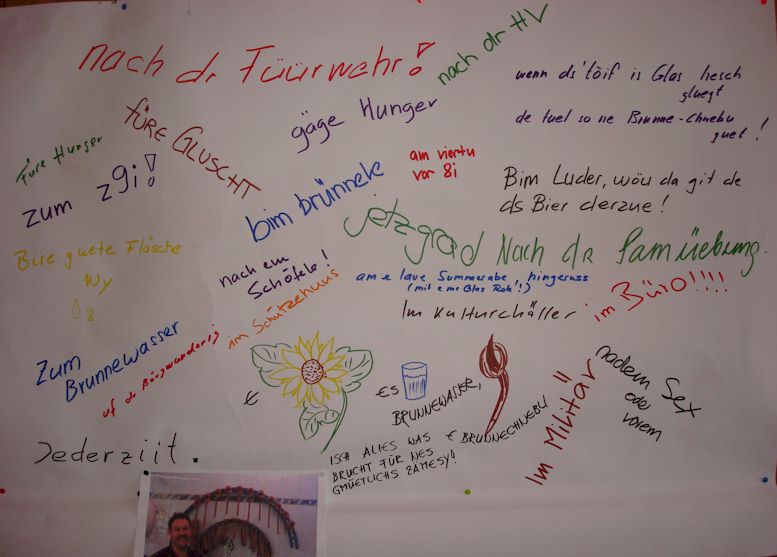 nach dr Füürwehr!
nach dr HV
wenn ds'töif is Glas hesch
gluegt
de tuet so ne Brunne-Chnebu
guet!
füre GLUSCHT
gäge Hunger
Füre Hunger
zum z9i!
am viertu
vor 8i
bim brünnele
Bim Luder, wöu da git de
ds Bier derzue!
jetz grad Nach dr Samüebung.
Bire guete Fläsche
Wy
nach em
Schöfele!
am e laue Summerabe, hingeruss
(mit e me Glas Rote!)
im Schützehuus
Im Kulturchäller
im Büro!!!!
Zum
Brunnewasser
uf dr Bärgwanderig
€
€s
BRUNNEWASSER,
€ BRUNNECHNEBU
Im Militär
nachem Sex
oder
vorem
Jederziit.
ISCH ALLES WAS
BRUCHT FÜR NES
GMÜETLICHS ZÄMESY!